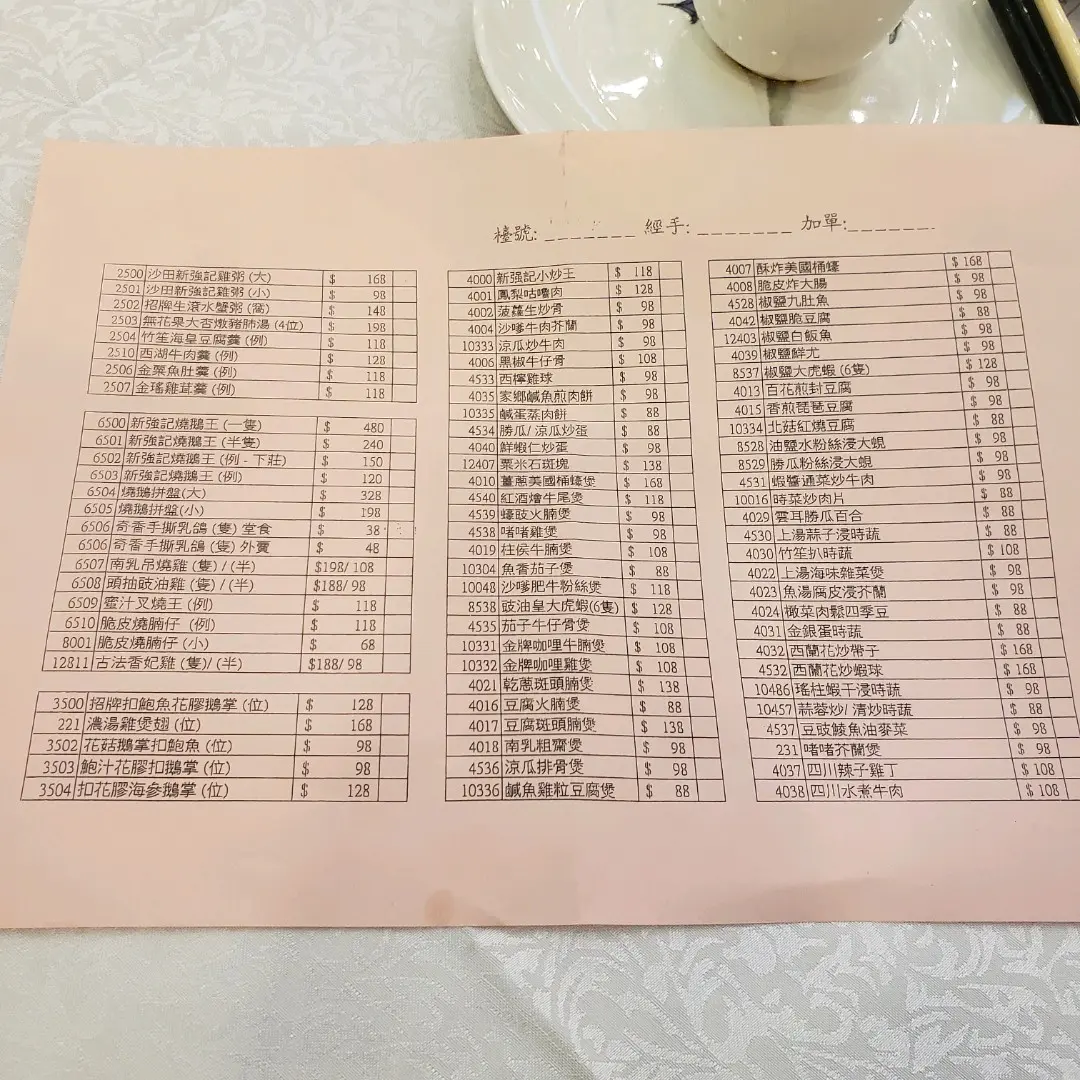 檯號: _______ 經手: _______ 加單:_______
2500 沙田新強記雞粥 (大) $ 168
2501 沙田新強記雞粥 (小) $ 98
2502 招牌生滾水蟹粥 (窩) $ 148
2503 無花果大杏燉豬肺湯 (4位) $ 198
2504 竹笙海皇豆腐羹 (例) $ 118
2510 西湖牛肉羹 (例) $ 128
2506 金粟魚肚羹 (例) $ 118
2507 金瑤雞茸羹 (例) $ 118
6500 新強記燒鵝王 (一隻) $ 480
6501 新強記燒鵝王 (半隻) $ 240
6502 新強記燒鵝王 (例 - 下莊) $ 150
6503 新強記燒鵝王 (例) $ 120
6504 燒鵝拼盤(大) $ 328
6505 燒鵝拼盤(小) $ 198
6506 奇香手撕乳鴿 (隻) 堂食 $ 38
6506 奇香手撕乳鴿 (隻) 外賣 $ 48
6507 南乳吊燒雞 (隻) / (半) $198/ 108
6508 頭抽豉油雞 (隻) / (半) $188/ 98
6509 蜜汁叉燒王 (例) $ 118
6510 脆皮燒腩仔 (例) $ 118
8001 脆皮燒腩仔 (小) $ 68
12811 古法香妃雞 (隻)/ (半) $188/ 98
3500 招牌扣鮑魚花膠鵝掌 (位) $ 128
221 濃湯雞煲翅 (位) $ 168
3502 花菇鵝掌扣鮑魚 (位) $ 98
3503 鮑汁花膠扣鵝掌 (位) $ 98
3504 扣花膠海參鵝掌 (位) $ 128
4000 新强記小炒王 $ 118
4001 鳳梨咕嚕肉 $ 128
4002 菠蘿生炒骨 $ 98
4004 沙嗲牛肉芥蘭 $ 98
10333 涼瓜炒牛肉 $ 98
4006 黑椒牛仔骨 $ 108
4533 西檸雞球 $ 98
4035 家鄉鹹魚煎肉餅 $ 98
10335 鹹蛋蒸肉餅 $ 88
4534 勝瓜/ 涼瓜炒蛋 $ 88
4040 鮮蝦仁炒蛋 $ 98
12407 粟米石斑塊 $ 138
4010 薑蔥美國桶蠔煲 $ 168
4540 紅酒燴牛尾煲 $ 118
4539 蠔豉火腩煲 $ 98
4538 啫啫雞煲 $ 98
4019 柱侯牛腩煲 $ 108
10304 魚香茄子煲 $ 88
10048 沙嗲肥牛粉絲煲 $ 98
8538 豉油皇大虎蝦(6隻) $ 128
4535 茄子牛仔骨煲 $ 108
10331 金牌咖哩牛腩煲 $ 108
10332 金牌咖哩雞煲 $ 108
4021 乾蔥斑頭腩煲 $ 138
4016 豆腐火腩煲 $ 88
4017 豆腐斑頭腩煲 $ 138
4018 南乳粗齋煲 $ 98
4536 涼瓜排骨煲 $ 98
10336 鹹魚雞粒豆腐煲 $ 88
4007 酥炸美國桶蠔 $ 168
4008 脆皮炸大腸 $ 98
4528 椒鹽九肚魚 $ 98
4042 椒鹽脆豆腐 $ 88
12403 椒鹽白飯魚 $ 98
4039 椒鹽鮮尤 $ 98
8537 椒鹽大虎蝦 (6隻) $ 128
4013 百花煎封豆腐 $ 98
4015 香煎琵琶豆腐 $ 98
10334 北菇紅燒豆腐 $ 88
8528 油鹽水粉絲浸大蜆 $ 98
8529 勝瓜粉絲浸大蜆 $ 98
4531 蝦醬通菜炒牛肉 $ 98
10016 時菜炒肉片 $ 88
4029 雲耳勝瓜百合 $ 88
4530 上湯蒜子浸時蔬 $ 88
4030 竹笙扒時蔬 $ 108
4022 上湯海味雜菜煲 $ 98
4023 魚湯腐皮浸芥蘭 $ 98
4024 欖菜肉鬆四季豆 $ 88
4031 金銀蛋時蔬 $ 88
4032 西蘭花炒帶子 $ 168
4532 西蘭花炒蝦球 $ 168
10486 瑤柱蝦干浸時蔬 $ 98
10457 蒜蓉炒/ 清炒時蔬 $ 88
4537 豆豉鯪魚油麥菜 $ 98
231 啫啫芥蘭煲 $ 98
4037 四川辣子雞丁 $ 108
4038 四川水煮牛肉 $ 108